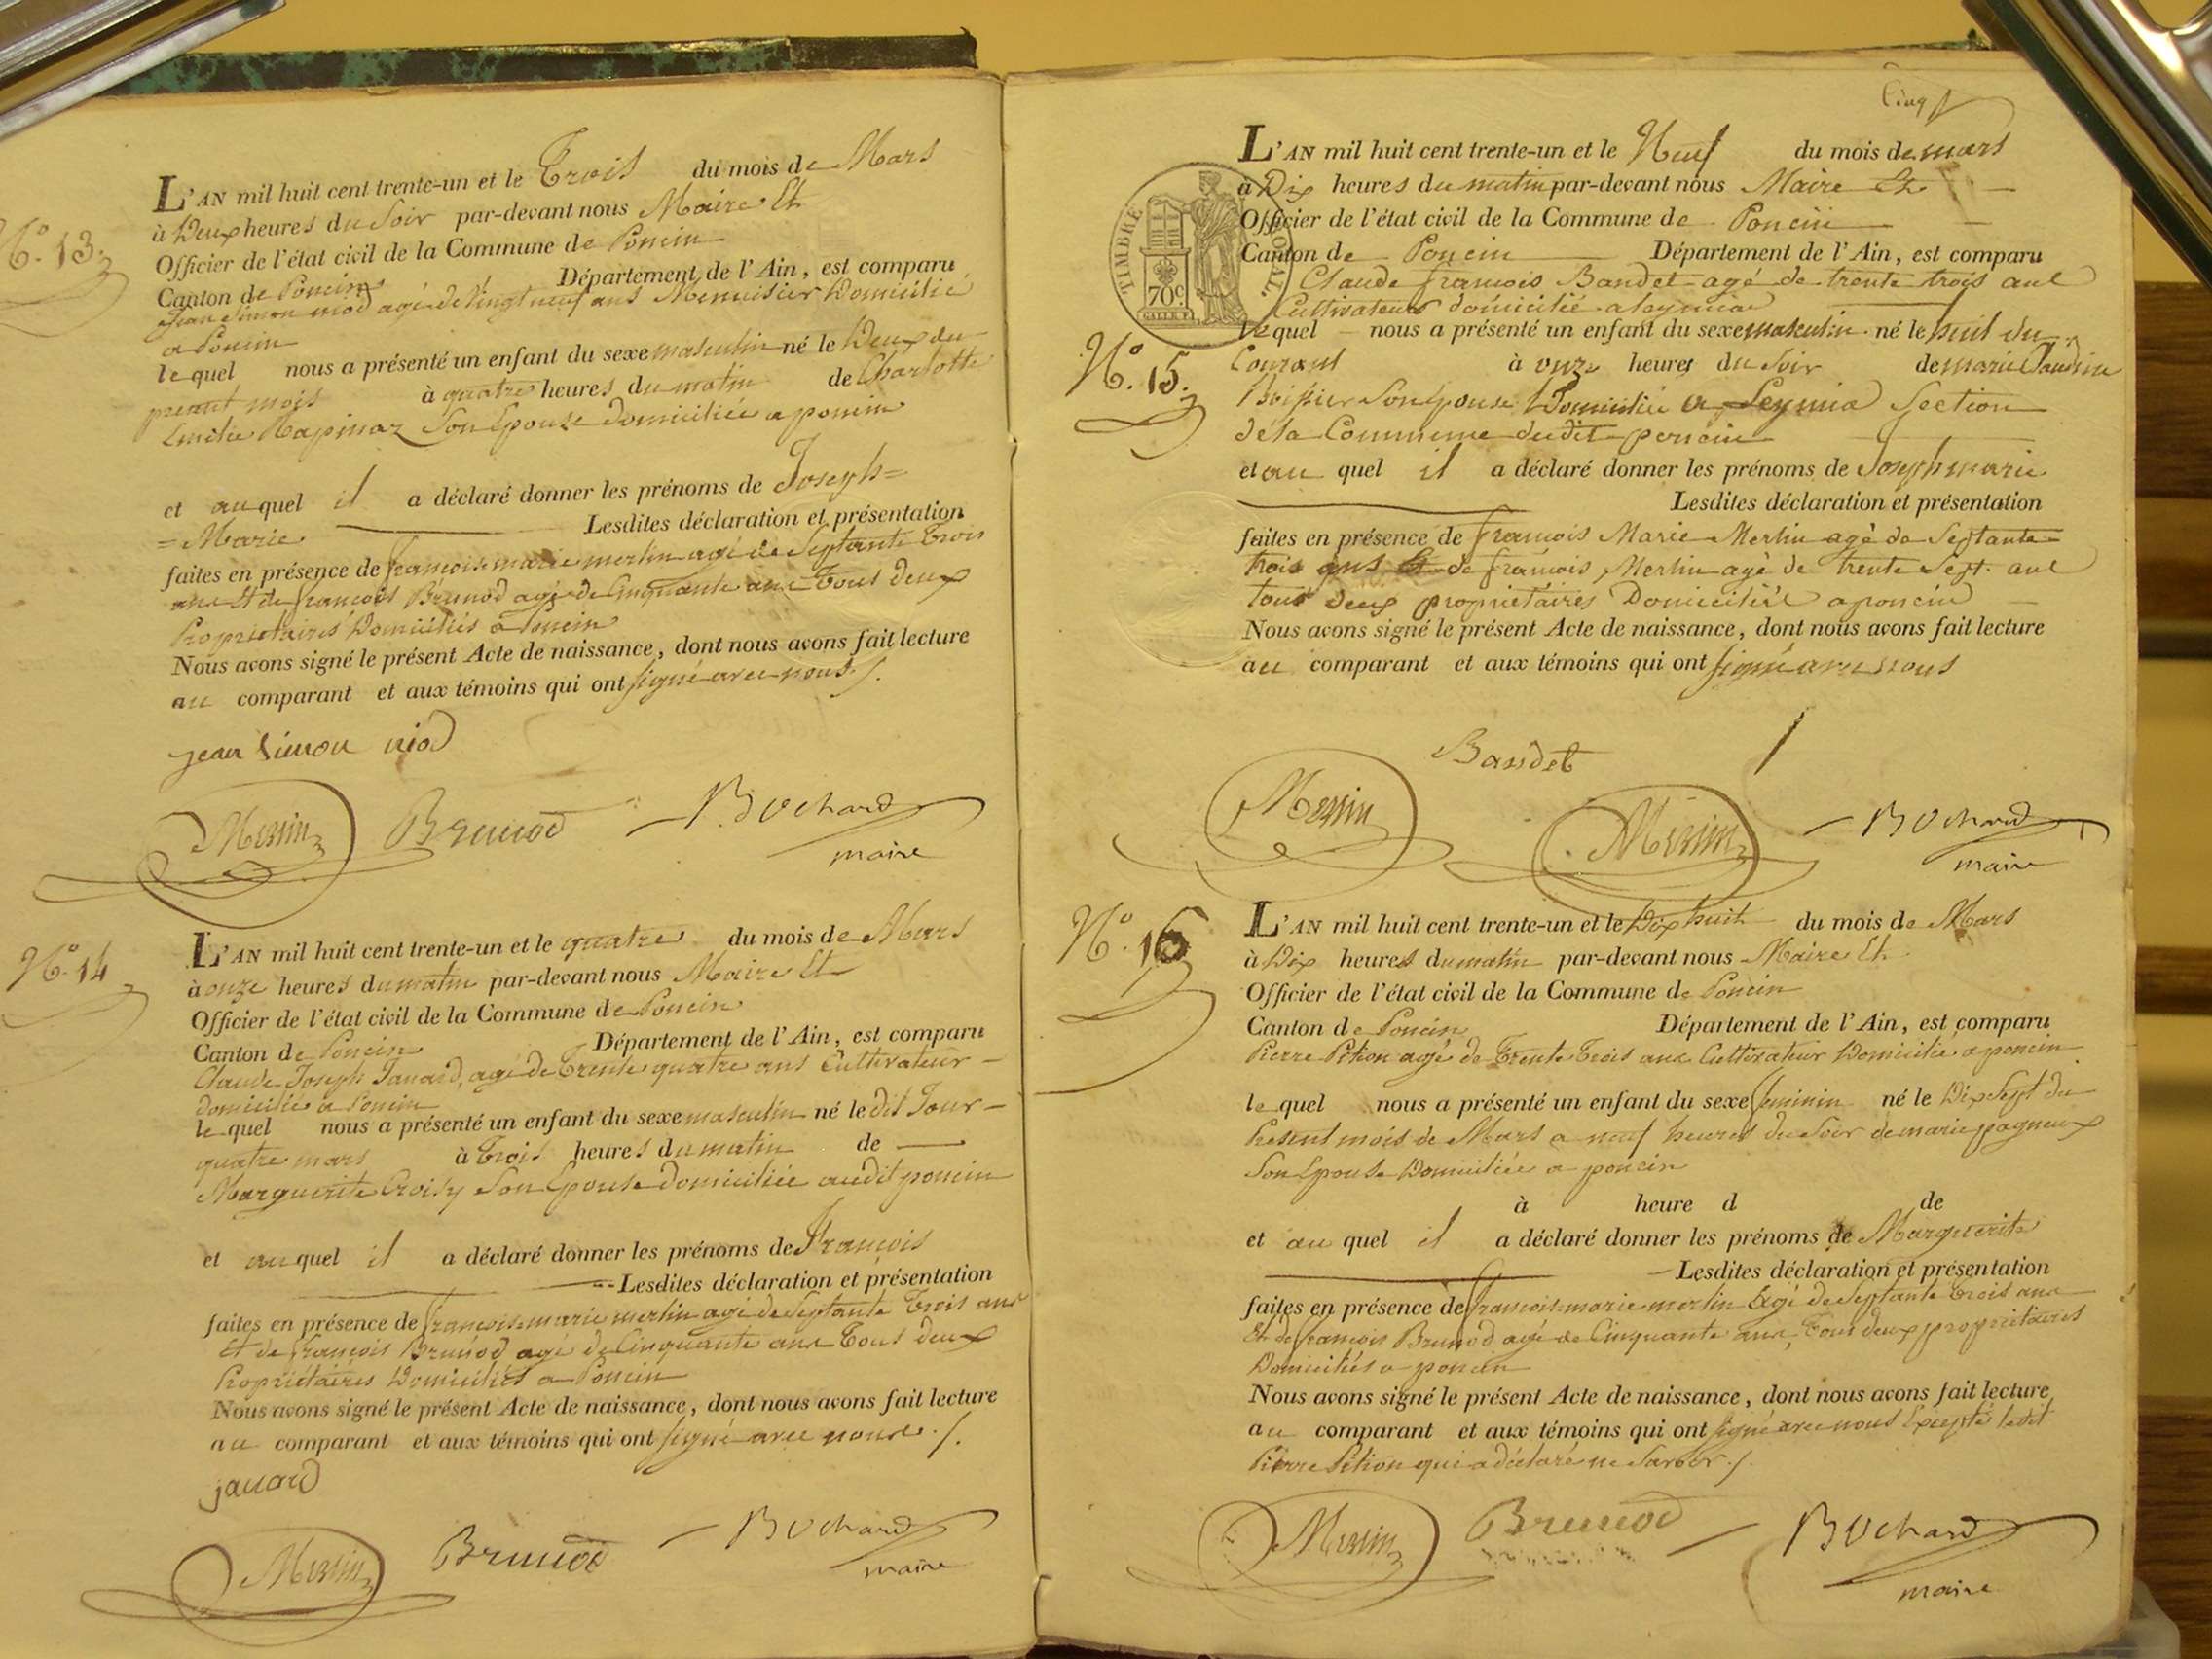 N.º 13.
L'AN mil huit cent trente-un et le Trois du mois de Mars
à Deux heures du Soir par-devant nous Maire Et
Officier de l'état civil de la Commune de Poncin
Canton de Poncin Département de l'Ain, est comparu
Jean Simon niod agé de Vingt neuf ans Menuisier Domicilié
a Poncin
lequel nous a présenté un enfant du sexe masculin né le Deux du
présent mois à quatre heures du matin de Charlotte
Emilie Rapinaz Son Epouse Domiciliée a poncin
et au quel il a déclaré donner les prénoms de Joseph=
=Marie. Lesdites déclaration et présentation
faites en présence de françois marie merlin agé de Septante Trois
ans Et de françois Brunod agé de Cinquante ans Tous deux
Propriétaires Domiciliés a Poncin
Nous avons signé le présent Acte de naissance, dont nous avons fait lecture
au comparant et aux témoins qui ont signé avec nous ./.
jean Simon niod
Merlin Brunod Bochard
maire
N.º 14
L'AN mil huit cent trente-un et le quatre du mois de Mars
à onze heures du matin par-devant nous Maire Et
Officier de l'état civil de la Commune de Poncin
Canton de Poncin Département de l'Ain, est comparu
Claude Joseph Janard, agé de Trente quatre ans Cultivateur
domicilié a Poncin
lequel nous a présenté un enfant du sexe masculin né le dit Jour
quatre mars à Trois heures du matin de
Marguerite Croisy Son Epouse domiciliée audit poncin
et au quel il a déclaré donner les prénoms de François
Lesdites déclaration et présentation
faites en présence de françois marie merlin agé de Septante Trois ans
Et de françois Brunod agé de Cinquante ans Tous deux
Propriétaires Domiciliés a Poncin
Nous avons signé le présent Acte de naissance, dont nous avons fait lecture
au comparant et aux témoins qui ont signé avec nous ./.
janard
Merlin Brunod Bochard
maire
Cinq
TIMBRE ROYAL.
70c
L'AN mil huit cent trente-un et le Neuf du mois de mars
à Dix heures du matin par-devant nous Maire Et
Officier de l'état civil de la Commune de Poncin
Canton de Poncin Département de l'Ain, est comparu
Claude françois Bandet agé de trente trois ans
Cultivateur domicilié a leymia
lequel nous a présenté un enfant du sexe masculin né le huit du
N.º 15.
Courant à onze heures du Soir de marie Claudine
Son Epouse Domiciliée a Leymia Section
de la Commune dudit poncin
et au quel il a déclaré donner les prénoms de Joseph marie
Lesdites déclaration et présentation
faites en présence de françois Marie Merlin agé de Septante
trois ans Et de françois Merlin agé de trente Sept ans
tous deux propriétaires Domiciliés a poncin
Nous avons signé le présent Acte de naissance, dont nous avons fait lecture
au comparant et aux témoins qui ont signé avec nous
Bandet
Merlin Merlin Bochard
maire
N.º 16
L'AN mil huit cent trente-un et le Dix huit du mois de Mars
à Dix heures du matin par-devant nous Maire Et
Officier de l'état civil de la Commune de Poncin
Canton de Poncin Département de l'Ain, est comparu
Pierre Pition agé de Trente Trois ans Cultivateur Domicilié a poncin
lequel nous a présenté un enfant du sexe feminin né le Dix Sept du
Présent mois de Mars a neuf heures du Soir de marie pagneux
Son Epouse Domiciliée a poncin
à heure d de
et au quel il a déclaré donner les prénoms de Marguerite
Lesdites déclaration et présentation
faites en présence de françois marie merlin Agé de Septante Trois ans
Et de françois Brunod agé de Cinquante ans, Tous deux propriétaires
Domiciliés a poncin
Nous avons signé le présent Acte de naissance, dont nous avons fait lecture
au comparant et aux témoins qui ont signé avec nous Excepté ledit
Pierre Pition qui a déclaré ne Savoir ./.
Merlin Brunod Bochard
maire